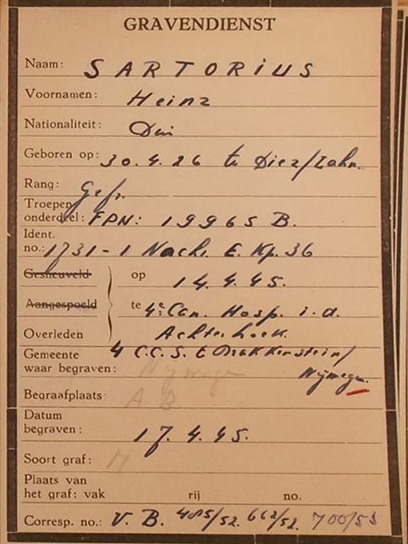 GRAVENDIENST
Naam: SARTORIUS
Voornamen: Heinz
Nationaliteit: Dui
Geboren op: 30.4.26 te Diez/Lahn.
Rang: Gefr.
Troepen
onderdeel: FPN: 19965 B.
Ident.
no.: 1731-1 Nachr. E. Kp. 36
Gesneuveld op 14.4.45.
Aangespoeld te 4e Can. Hosp. i.d.
Overleden Achterhoek.
Gemeente 4 C.C.S. E Drakkenstein/
waar begraven: Nijmegen Nijmegen.
Begraafplaats: A B
Datum
begraven: 17.4.45.
Soort graf:
Plaats van
het graf: vak rij no.
Corresp. no.: V. B. 485/52. 662/52. 700/53